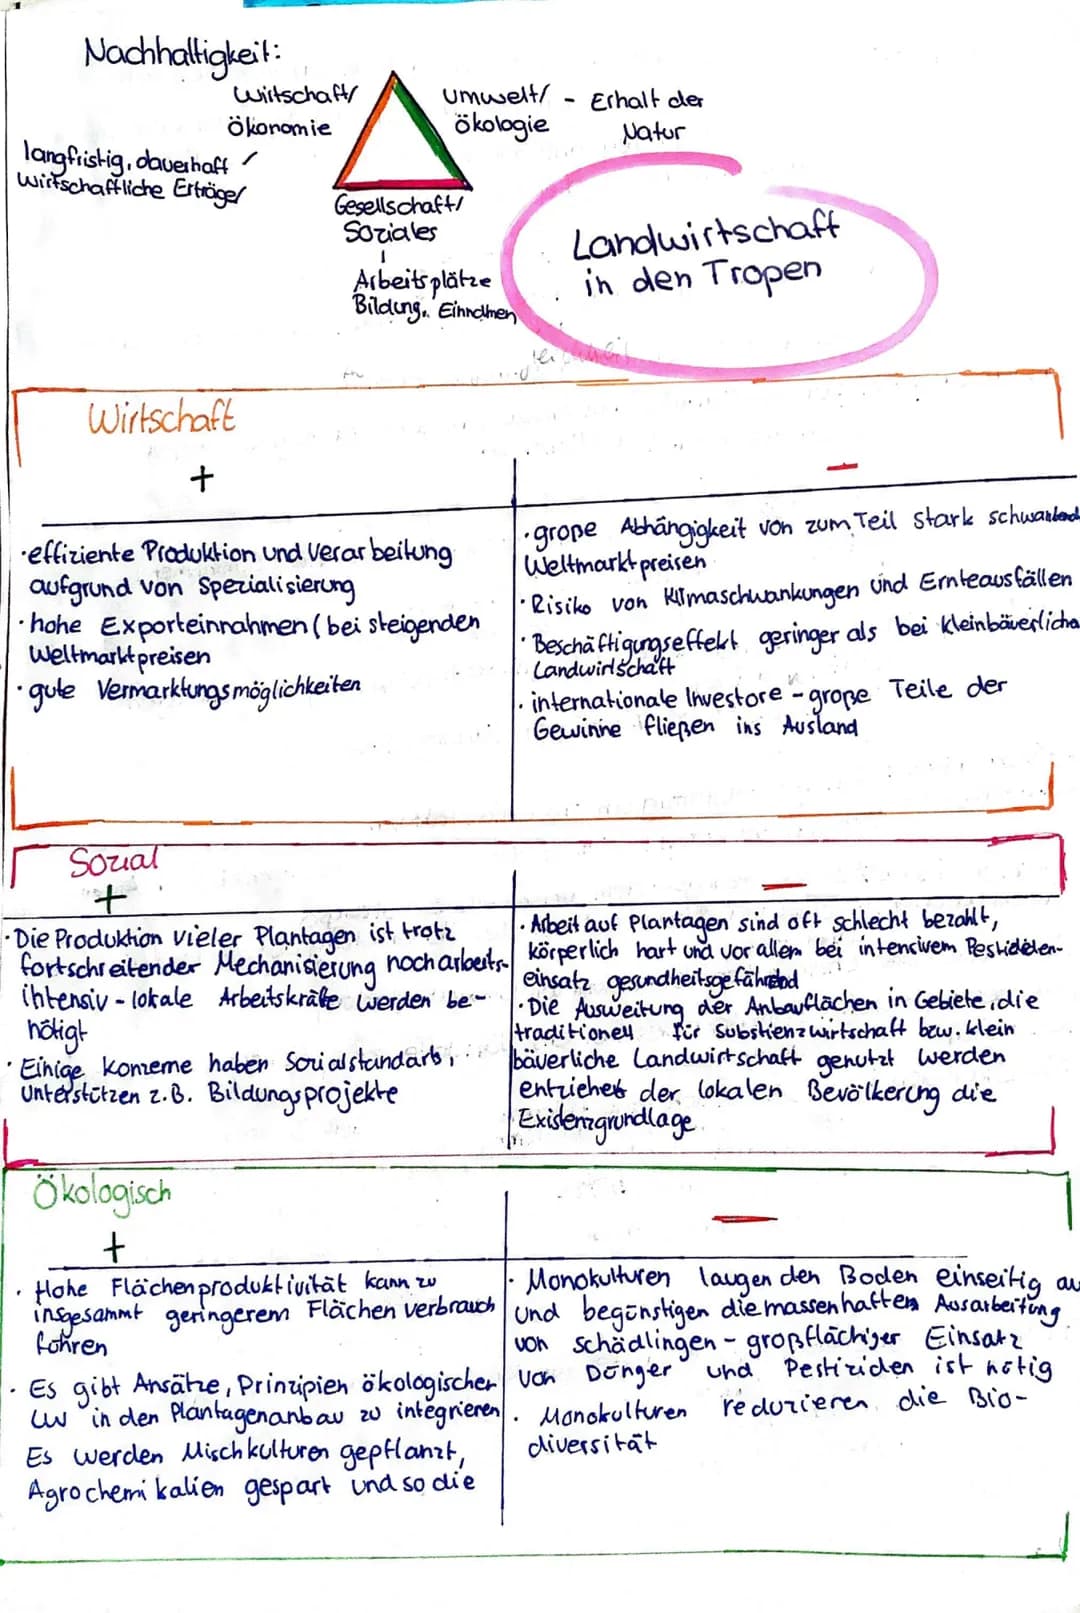 Nachhaltigkeit:
Wirtschaft/
Ökonomie
Umwelt/ - Erhalt der
Ökologie Natur
langfristig, dauerhaft
wirtschaftliche Erträge/
Gesellschaft/
Soziales
Arbeitsplätze
Bildung, Einnahmen
Landwirtschaft
in den Tropen
Wirtschaft
+
·effiziente Produktion und Verarbeitung
aufgrund von Spezialisierung
·hohe Exporteinnahmen (bei steigenden
Weltmarktpreisen
·gute Vermarktungsmöglichkeiten
-
·große Abhängigkeit von zum Teil stark schwankend
Weltmarktpreisen
·Risiko von Klimaschwankungen und Ernteausfällen
·Beschäftigungseffekt geringer als bei kleinbäuerliche
Landwirtschaft
·internationale Investore - große Teile der
Gewinne fließen ins Ausland
Sozial
+
·Die Produktion vieler Plantagen ist trotz
fortschreitender Mechanisierung noch arbeits-
intensiv - lokale Arbeitskräfte werden be-
nötigt
·Einige konzerne haben Sozialstandarts,
unterstützen z.B. Bildungsprojekte
-
·Arbeit auf Plantagen sind oft schlecht bezahlt,
körperlich hart und vor allem bei intensivem Pestiziden-
einsatz gesundheitsgefährdend
·Die Ausweitung der Anbauflächen in Gebiete, die
traditionell für Substienzwirtschaft bzw. klein
bäuerliche Landwirtschaft genutzt werden
entziehet der lokalen Bevölkerung die
Existenzgrundlage
Ökologisch
+
·Hohe Flächenproduktivität kann zu
insgesammt geringerem Flächenverbrauch
führen
·Es gibt Ansätze, Prinzipien ökologischer
LW in den Plantagenanbau zu integrieren
Es werden Mischkulturen gepflanzt,
Agrochemikalien gespart und so die
-
·Monokulturen laugen den Boden einseitig au
und begünstigen die massenhaften Ausarbeitung
von Schädlingen - großflächiger Einsatz
von Dünger und Pestiziden ist nötig
·Monokulturen reduzieren die Bio-
diversität